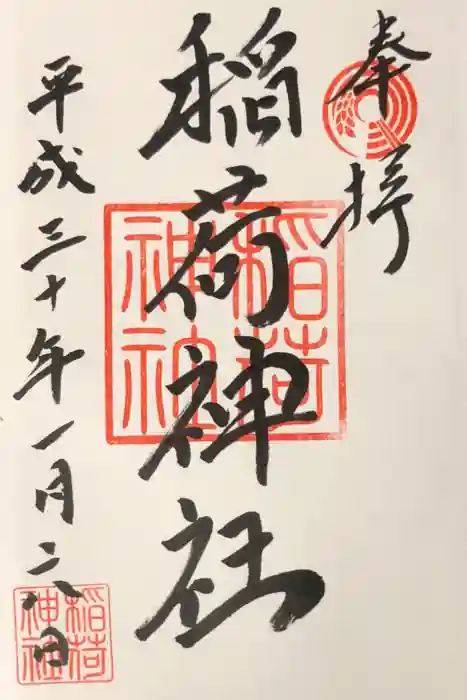 奉拝
稲荷神社
稲荷
神社
平成三十年一月二八日
稲荷
神社